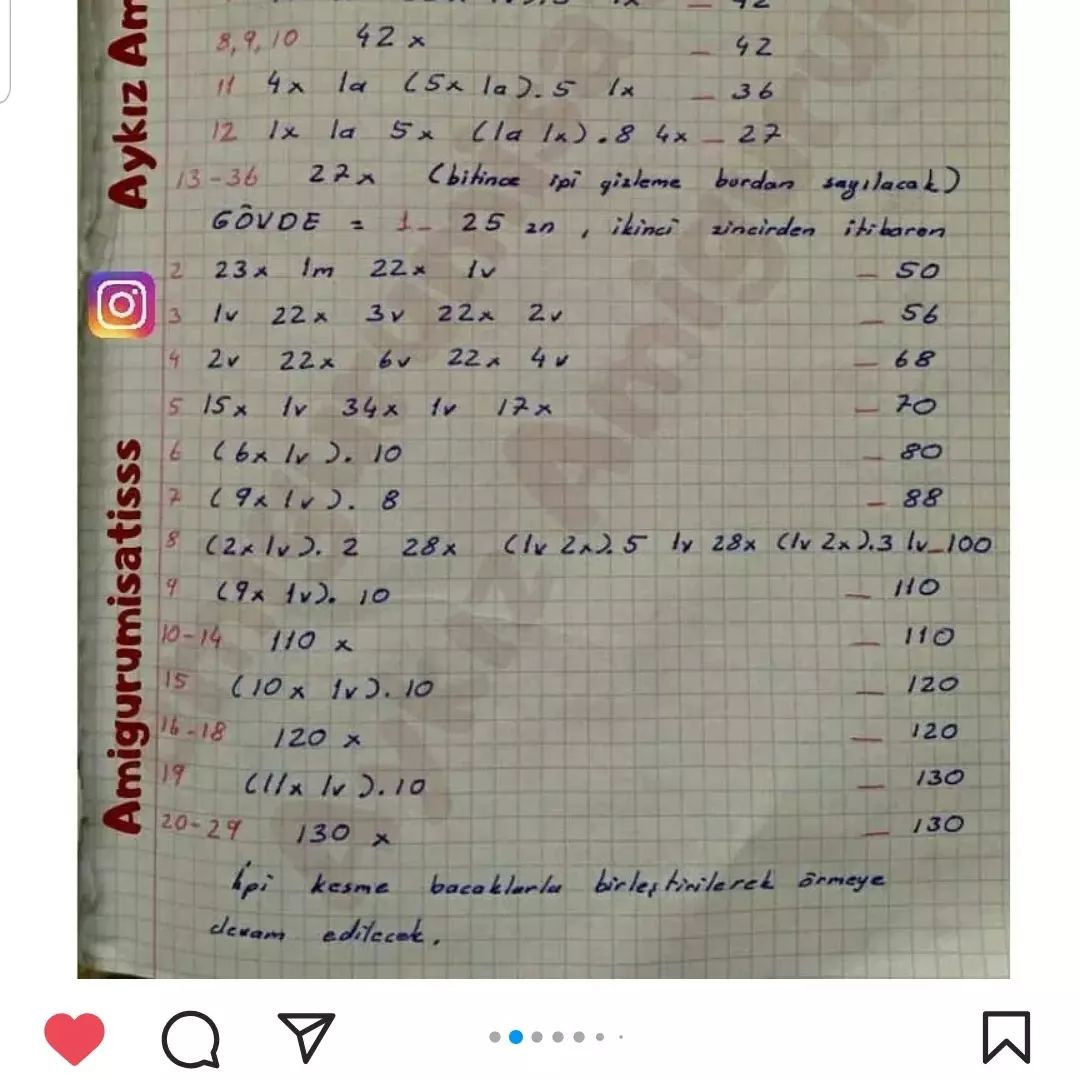 42
8,9,10 42 x _ 42
11 4x 1a (5x 1a). 5 1x _ 36
12 1x 1a 5x (1a 1x). 8 4x _ 27
13-36 27x (bitince ipi gizleme burdan sayılacak)
GÖVDE = 1- 25 zn, ikinci zincirden itibaren
2 23x 1m 22x 1v _ 50
3 1v 22x 3v 22x 2v _ 56
4 2v 22x 6v 22x 4v _ 68
5 15x 1v 34x 1v 17x _ 70
6 (6x 1v). 10 _ 80
7 (9x 1v). 8 _ 88
8 (2x 1v). 2 28x (1v 2x). 5 1v 28x (1v 2x). 3 1v _ 100
9 (9x 1v). 10 _ 110
10-14 110 x _ 110
15 (10x 1v). 10 _ 120
16-18 120 x _ 120
19 (11x 1v). 10 _ 130
20-29 130 x _ 130
İpi kesme bacaklarla birleştirilerek örmeye
devam edilecek.
Amigurumisatisss
Aykız Am